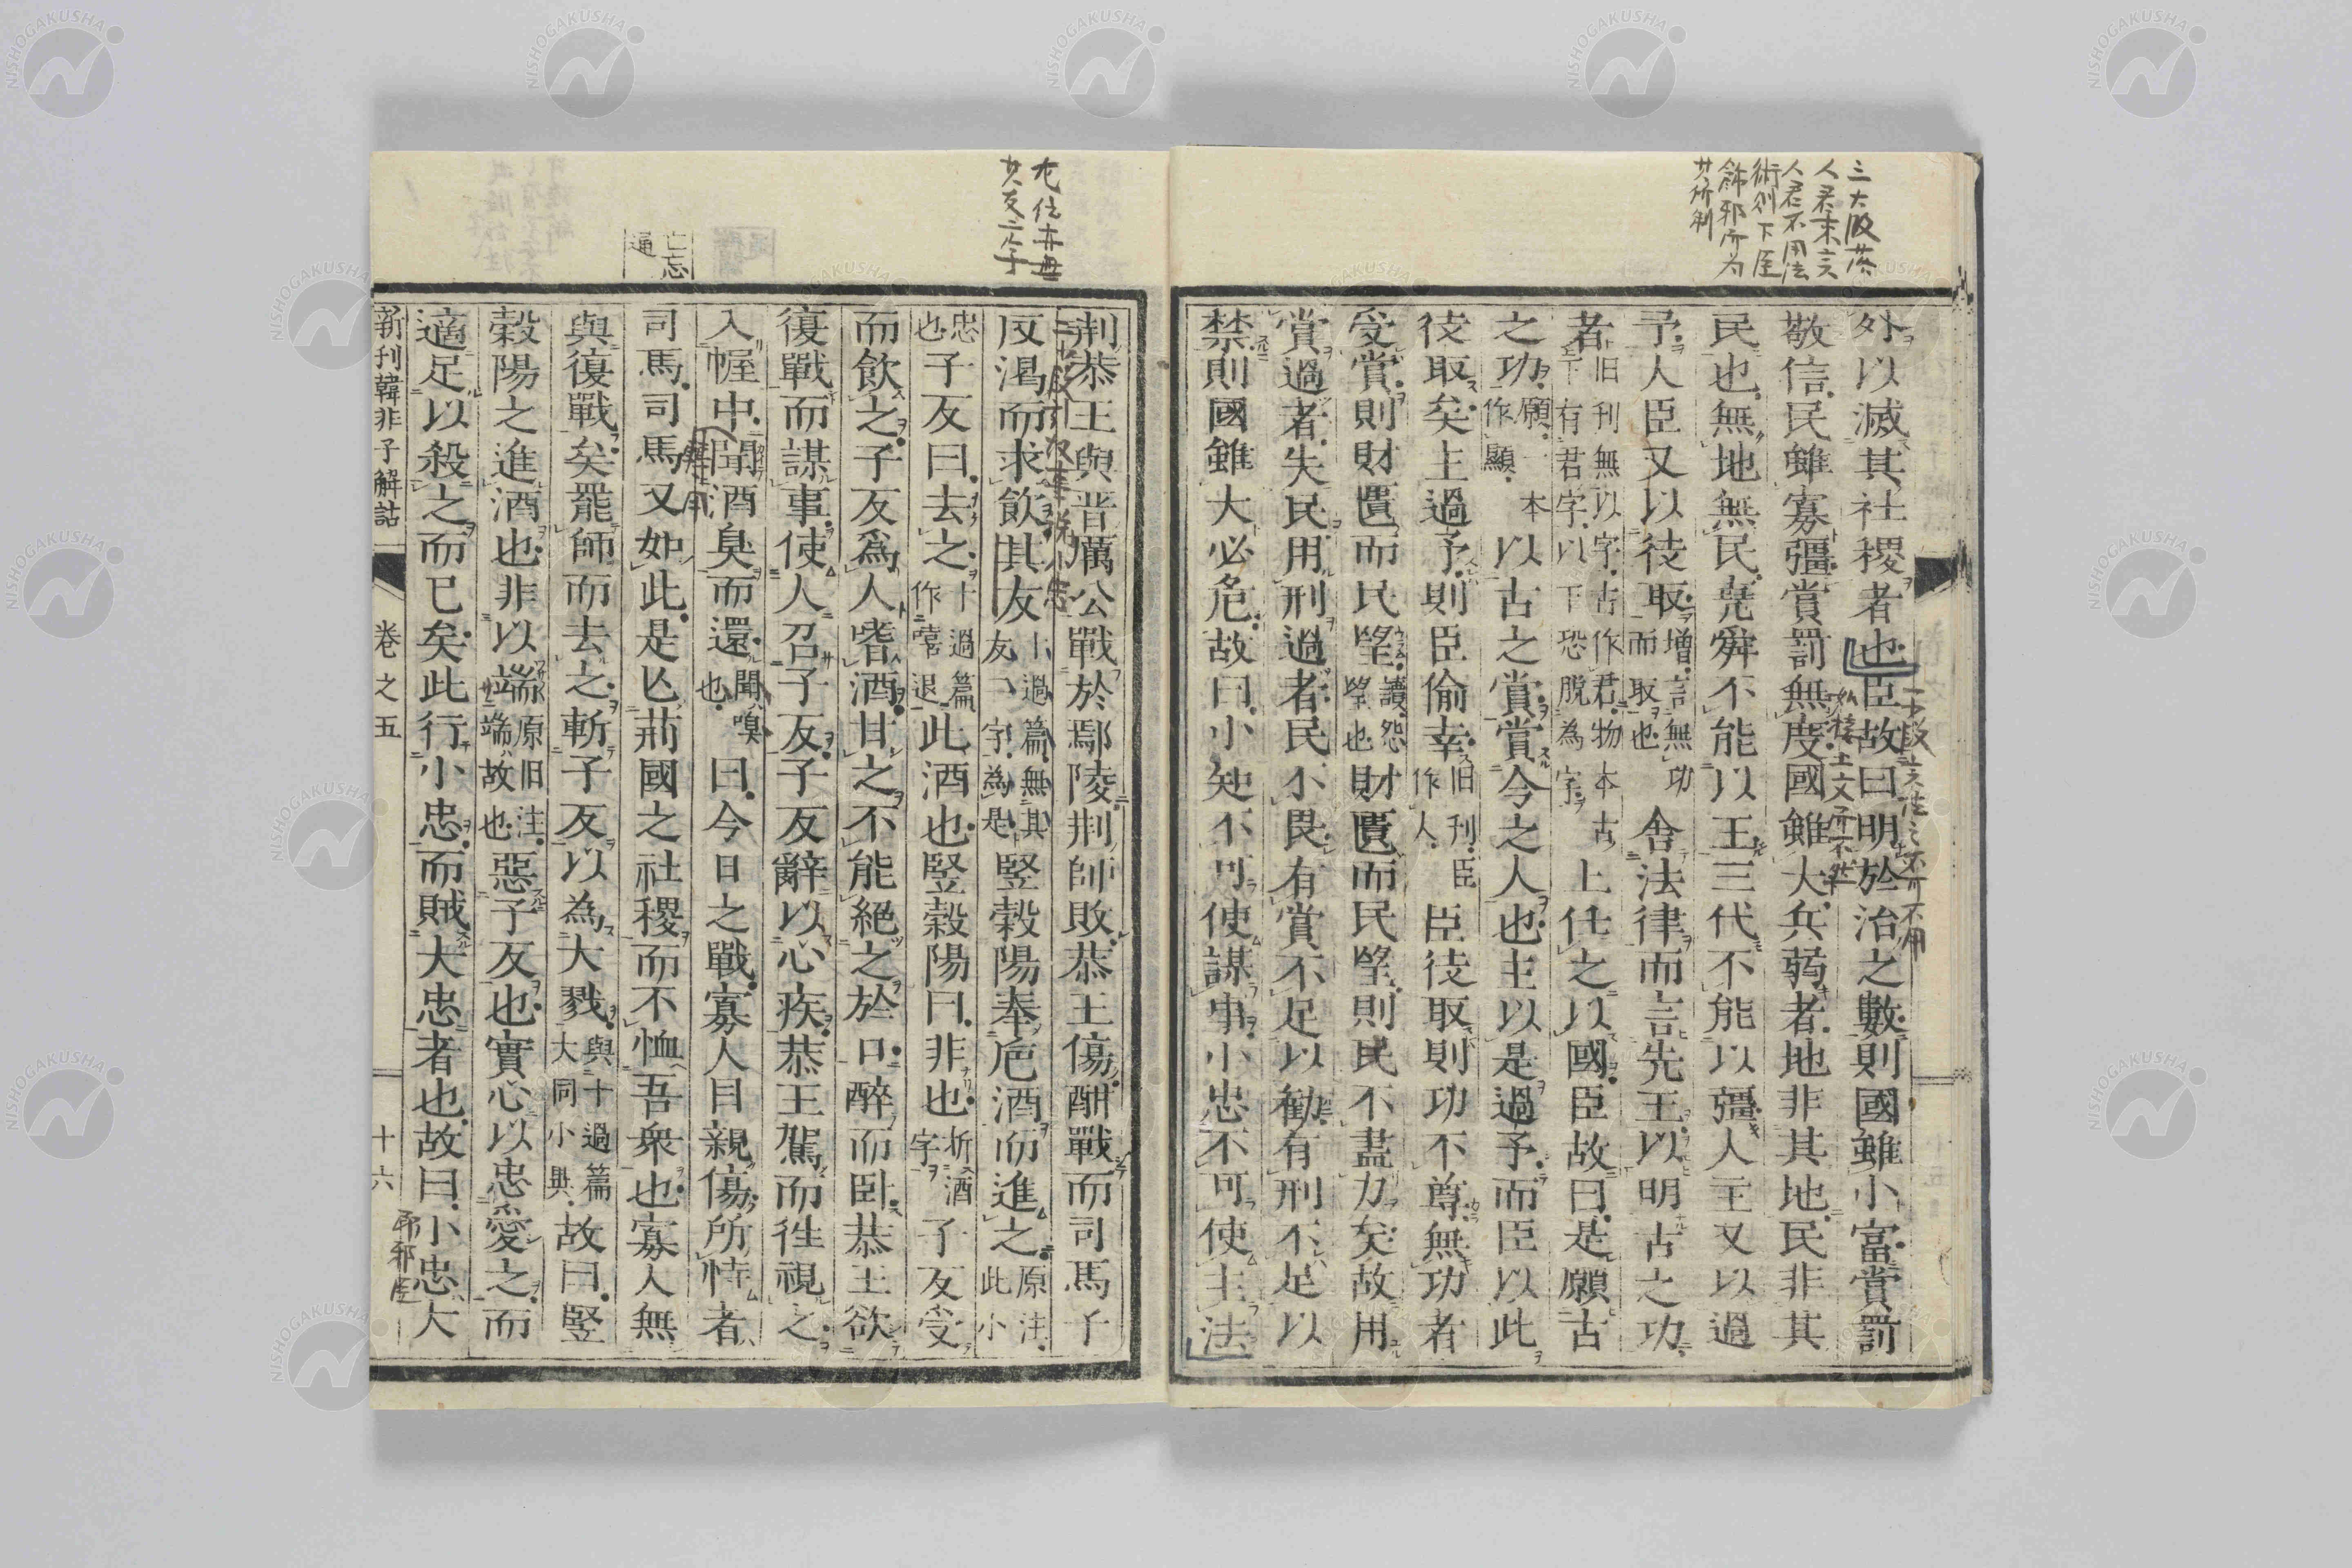 外以滅其社稷者也臣故曰明於治之數則國雖小富賞罰
敬信民雖寡彊賞罰無度國雖大兵弱者地非其地民非其
民也無地無民堯舜不能以王三代不能以彊人主又以過
予人臣又以徒取増言無功而取也舍法律而言先王以明古之功
者旧刊無以字古作君物本古下有君字以下恐脱為字上任之以國臣故曰是願古
之功願一本作顯以古之賞賞今之人也主以是過予而臣以此
徒取矣主過予則臣偷幸旧刊臣作人臣徒取則功不尊無功者
受賞則財匱而民望讀怨望也財匱而民望則民不盡力矣故用
賞過者失民用刑過者民不畏有賞不足以勸有刑不足以
禁則國雖大必危故曰小知不可使謀事小忠不可使主法
荆恭王與晋厲公戰於鄢陵荆師敗恭王傷酣戰而司馬子
反渴而求飲其友十過篇無其友二字為是豎穀陽奉巵酒而進之原注此小
忠也子反曰去之十過篇作嘻退此酒也豎穀陽曰非也析酒字子反受
而飲之子反為人嗜酒甘之不能絕之於口醉而臥恭王欲
復戰而謀事使人召子反子反辭以心疾恭王駕而往視之
入幄中聞酒臭而還聞嗅也曰今日之戰寡人目親傷所恃者
司馬司馬又如此是亾荊國之社稷而不恤吾衆也寡人無
與復戰矣罷師而去之斬子反以為大戮與十過篇大同小異故曰豎
穀陽之進酒也非以端原旧注端故也惡子反也實心以忠愛之而
適足以殺之而已矣此行小忠而賊大忠者也故曰小忠大
新刊韓非子解詁
巻之五
十六
亡忘
通